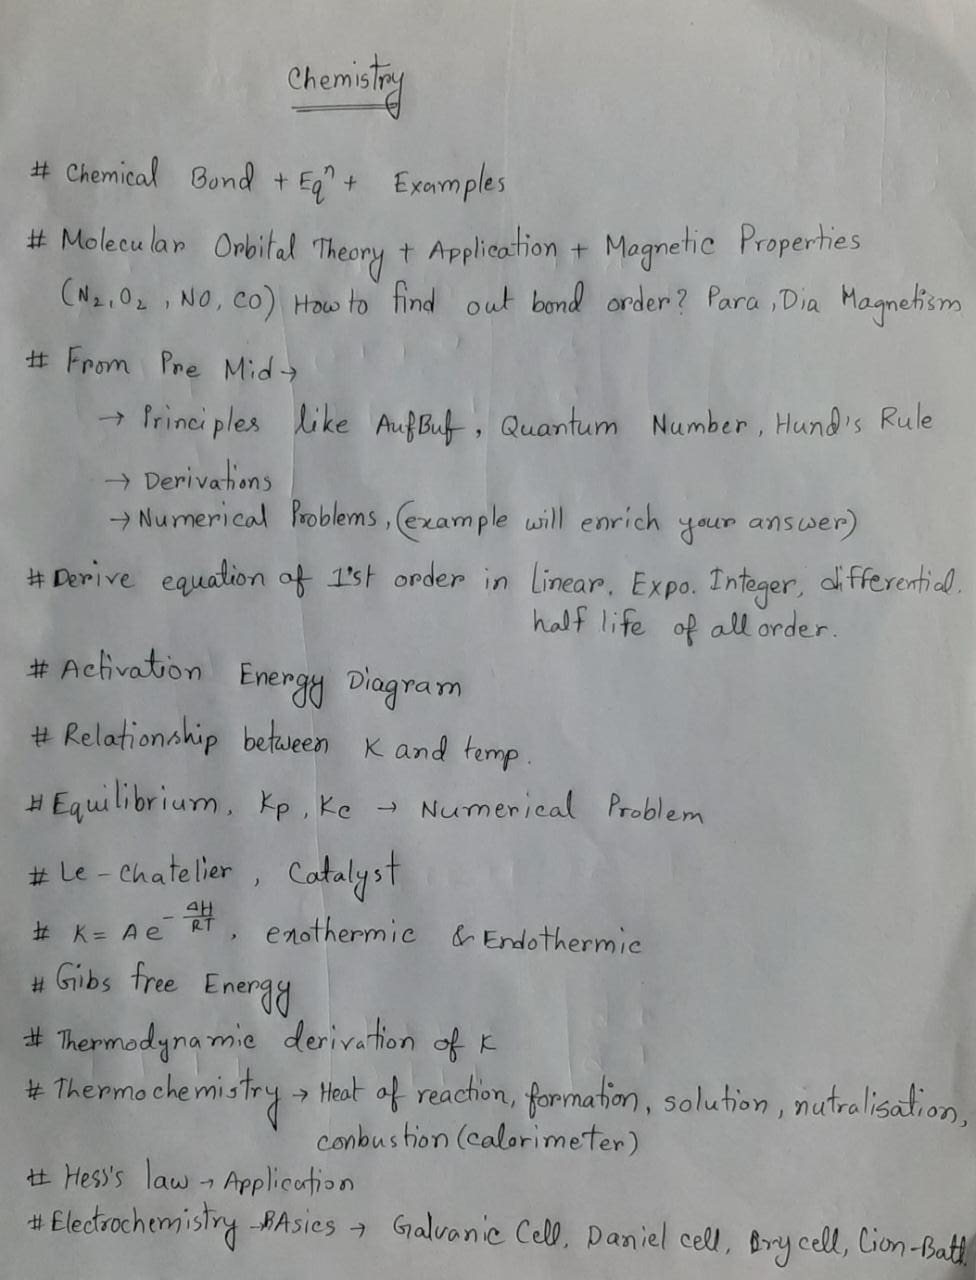 Chemistry
# Chemical Bond + Eqⁿ + Examples
# Molecular Orbital Theory + Application + Magnetic Properties
(N₂, O₂, NO, CO) How to find out bond order? Para, Dia Magnetism
# From Pre Mid →
→ Principles like AufBuf, Quantum Number, Hund's Rule
→ Derivations
→ Numerical Problems, (example will enrich your answer)
# Derive equation of 1'st order in Linear, Expo. Integer, differential.
half life of all order.
# Activation Energy Diagram
# Relationship between K and temp.
# Equilibrium, Kp, Kc → Numerical Problem
# Le-Chatelier, Catalyst
# K = Ae^-ΔH/RT, exothermic & Endothermic
# Gibs free Energy
# Thermodynamic derivation of K
# Thermochemistry → Heat of reaction, formation, solution, nutralisation,
conbustion (calorimeter)
# Hess's law → Application
# Electrochemistry - BAsics → Galvanic Cell, Daniel cell, Dry cell, Lion-Batt